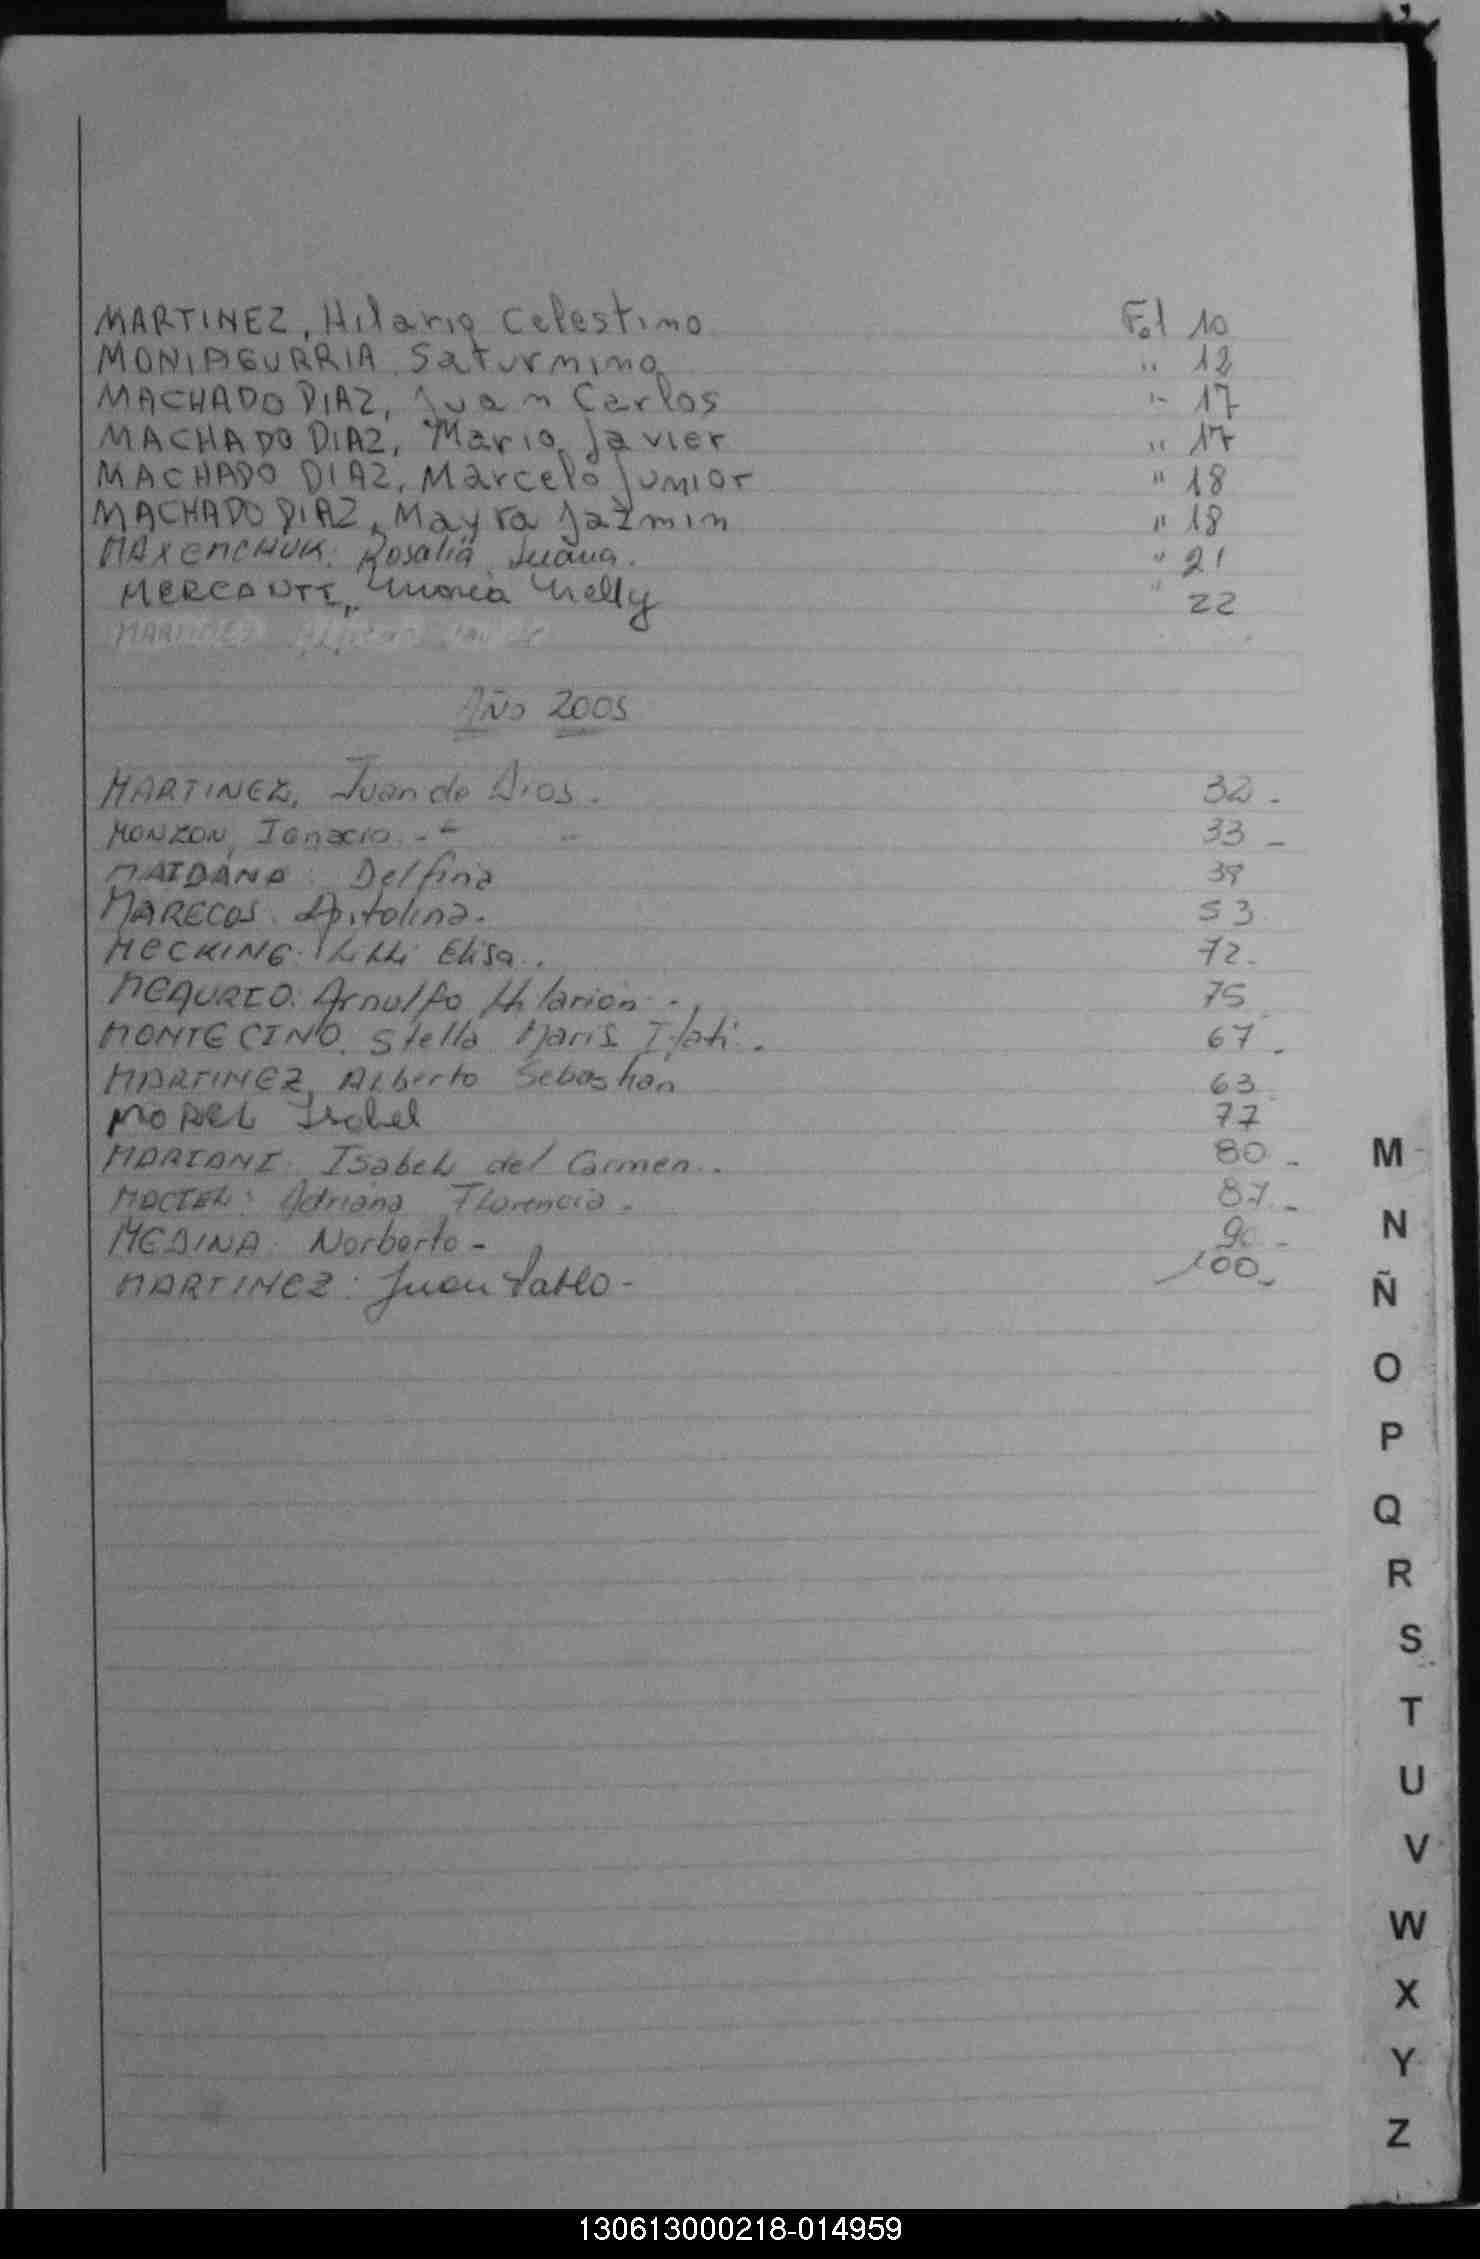 MARTINEZ, Hilario Celestino Fol 10
MONIAGURRIA Saturnino " 12
MACHADO DIAZ, Juan Carlos " 17
MACHADO DIAZ, Mario Javier " 17
MACHADO DIAZ, Marcelo Junior " 18
MACHADO DIAZ, Mayra Jazmin " 18
MAXEMCHUK: Rosalia Juana. " 21
MERCANTE, Nelly " 22
Año 2005
MARTINEZ, Juan de Dios. 32.
MONZON, Ignacio. 33 -
MAIDANA: Delfina 39
MARECOS. Apitolina. 53
MECKING. Lilli Elisa. 72.
MEAURIO: Arnulfo Hilarion. 75
MONTECINO. Stella Maris Itati. 67.
MARTINEZ, Alberto Sebastian 63
MOREL Isabel 77
MARIANI: Isabel del Carmen. 80 -
MACIEL: Adriana Florencia. 87 -
MEDINA: Norberto - 90 -
MARTINEZ: Juan Pablo - 100 -
M
N
Ñ
O
P
Q
R
S
T
U
V
W
X
Y
Z
130613000218-014959